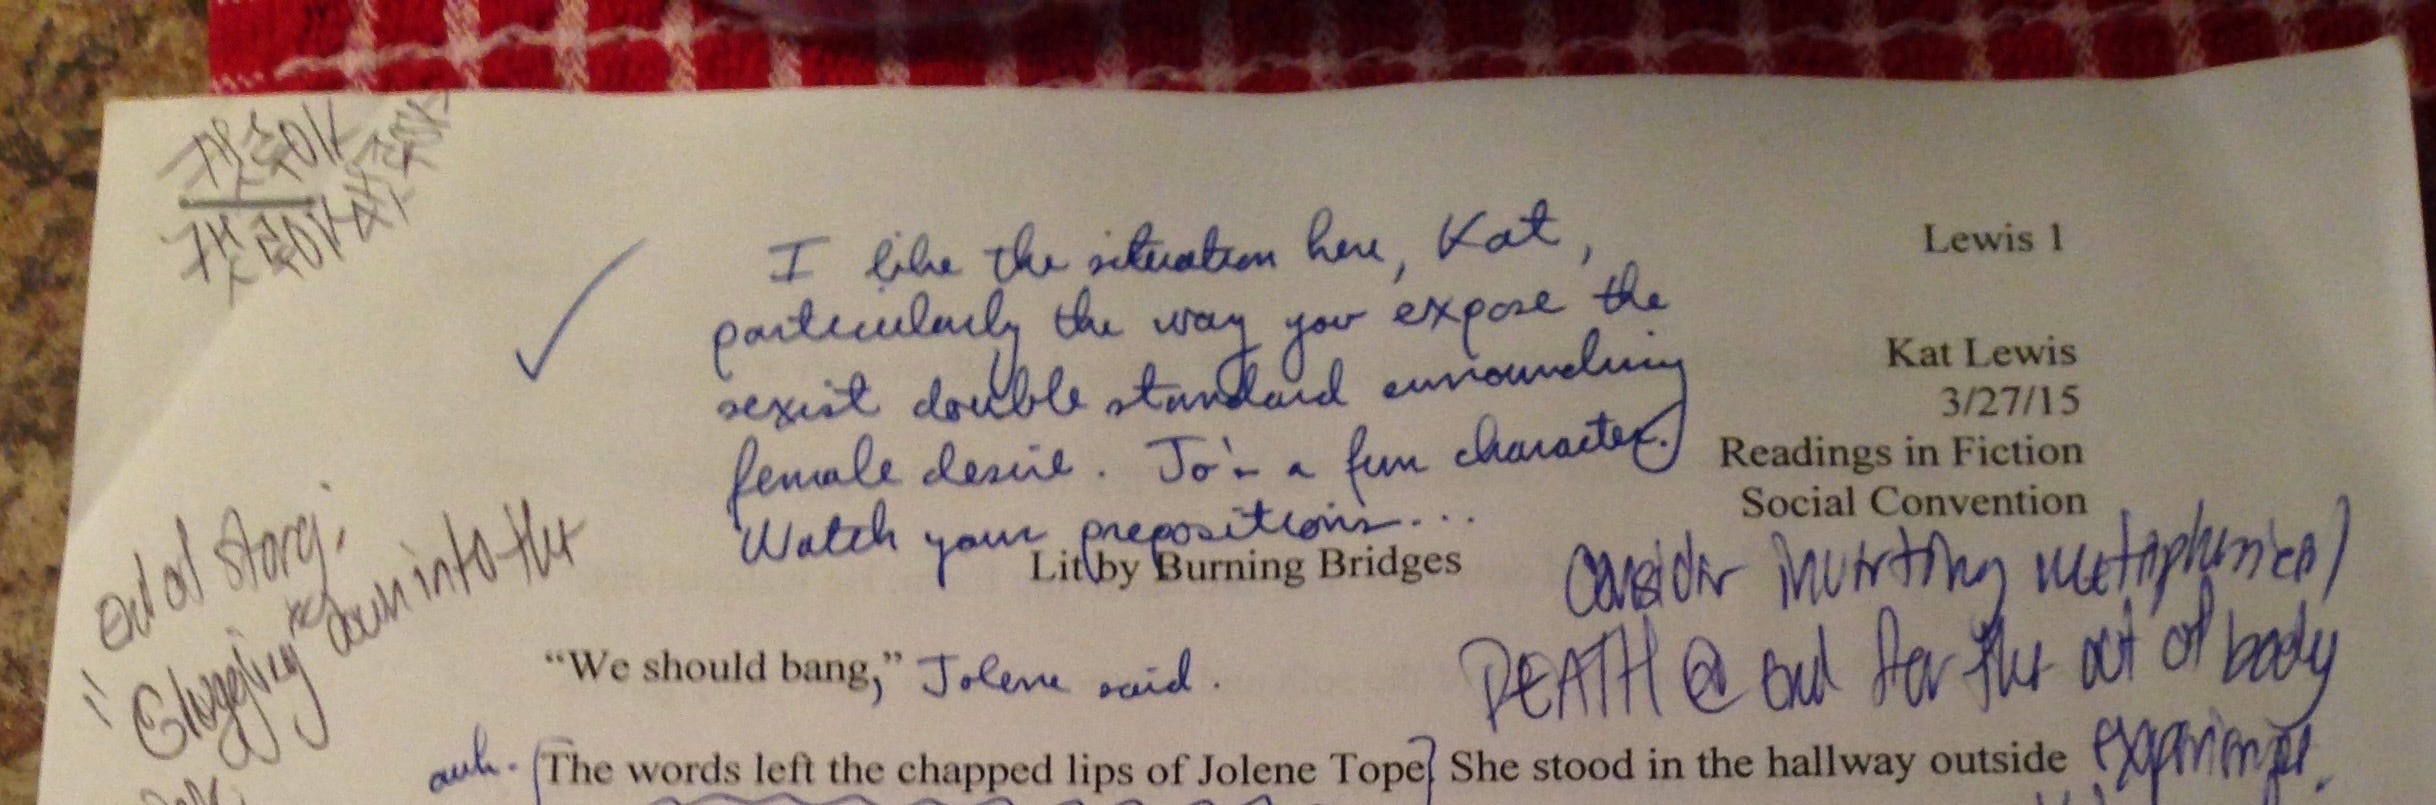 I like the situation here, Kat,
particularly the way you expose the
sexist double standard surrounding
female desire. Jo's a fun character.
Watch your prepositions...
Lewis 1
Kat Lewis
3/27/15
Readings in Fiction
Social Convention
Lit by Burning Bridges
Consider inverting metaphysical
DEATH @ end for the out of body
experience.
end of story:
down into the
"We should bang," Jolene said.
awk. The words left the chapped lips of Jolene Tope. She stood in the hallway outside